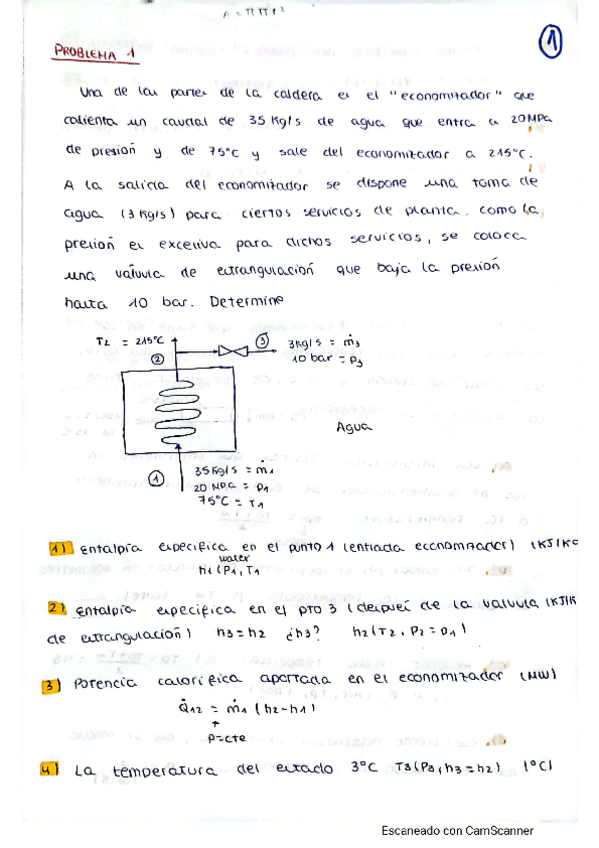 A = π π r²
1
PROBLEMA 1
Una de las partes de la caldera es el "economizador" que
calienta un caudal de 35 Kg/s de agua que entra a 20MPa
de presión y de 75°C y sale del economizador a 215°C.
A la salida del economizador se dispone una toma de
agua (3 Kg/s) para ciertos servicios de planta. como la
presión es excesiva para dichos servicios, se coloca
una válvula de estrangulación que baja la presión
hasta 10 bar. Determine
T2 = 215°C
2
3
3Kg/s = ṁ3
10 bar = p3
Agua
1
35 Kg/s = ṁ1
20 MPa = p1
75°C = T1
1) Entalpía específica en el punto 1 (entrada economizador) (KJ/KG
water
h1(P1,T1
2) Entalpía específica en el pto 3 (después de la válvula (KJ/K
de estrangulación) h3=h2 ¿h3? h2(T2, P2=p1)
3) Potencia calorífica aportada en el economizador (MW)
Q̇12 = ṁ1 (h2-h1)
↑
p=cte
4) La temperatura del estado 3°C T3(P3,h3=h2) (°C)
Escaneado con CamScanner